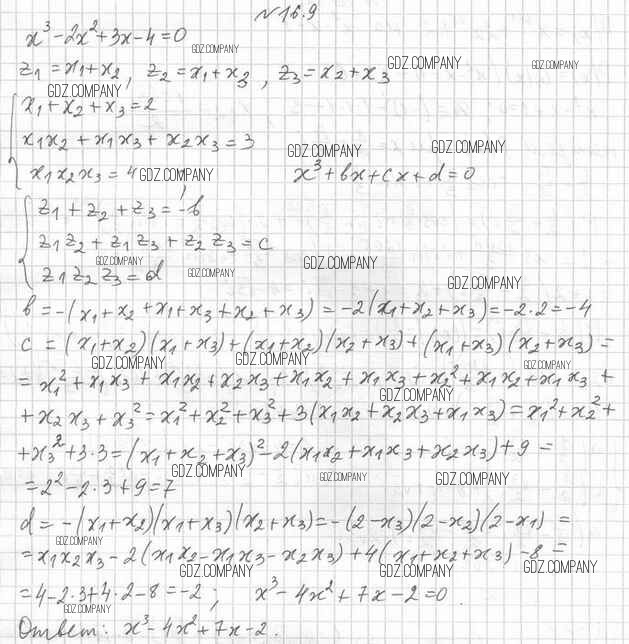 №16.9
x³-2x²+3x-4=0
GDZ.COMPANY
z₁=x₁+x₂, z₂=x₁+x₃, z₃=x₂+x₃ GDZ.COMPANY GDZ.COMPANY
GDZ.COMPANY
x₁+x₂+x₃=2
x₁x₂+x₁x₃+x₂x₃=3 GDZ.COMPANY GDZ.COMPANY
x₁x₂x₃=4 GDZ.COMPANY x³+bx+cx+d=0
z₁+z₂+z₃=-b
z₁z₂+z₁z₃+z₂z₃=c
GDZ.COMPANY GDZ.COMPANY
z₁z₂z₃=d GDZ.COMPANY GDZ.COMPANY
b=-(x₁+x₂+x₁+x₃+x₂+x₃)=-2(x₁+x₂+x₃)=-2·2=-4
c=(x₁+x₂)(x₁+x₃)+(x₁+x₂)(x₂+x₃)+(x₁+x₃)(x₂+x₃)=
GDZ.COMPANY GDZ.COMPANY GDZ.COMPANY
=x₁²+x₁x₃+x₁x₂+x₂x₃+x₁x₂+x₁x₃+x₂²+x₁x₂+x₁x₃+
GDZ.COMPANY
+x₂x₃+x₃²=x₁²+x₂²+x₃²+3(x₁x₂+x₂x₃+x₁x₃)=x₁²+x₂²+
+x₃²+3·3=(x₁+x₂+x₃)²-2(x₁x₂+x₁x₃+x₂x₃)+9=
GDZ.COMPANY GDZ.COMPANY GDZ.COMPANY
=2²-2·3+9=7
d=-(x₁+x₂)(x₁+x₃)(x₂+x₃)=-(2-x₃)(2-x₂)(2-x₁)=
GDZ.COMPANY
=x₁x₂x₃-2(x₁x₂-x₁x₃-x₂x₃)+4(x₁+x₂+x₃)-8=
GDZ.COMPANY GDZ.COMPANY GDZ.COMPANY
=4-2·3+4·2-8=-2; x³-4x²+7x-2=0.
GDZ.COMPANY
Ответ: x³-4x²+7x-2.